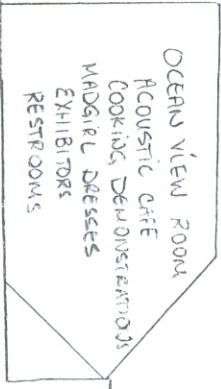 OCEAN VIEW ROOM
ACOUSTIC CAFE
COOKING DEMONSTRATIONS
MADGIRL DRESSES
EXHIBITORS
RESTROOMS